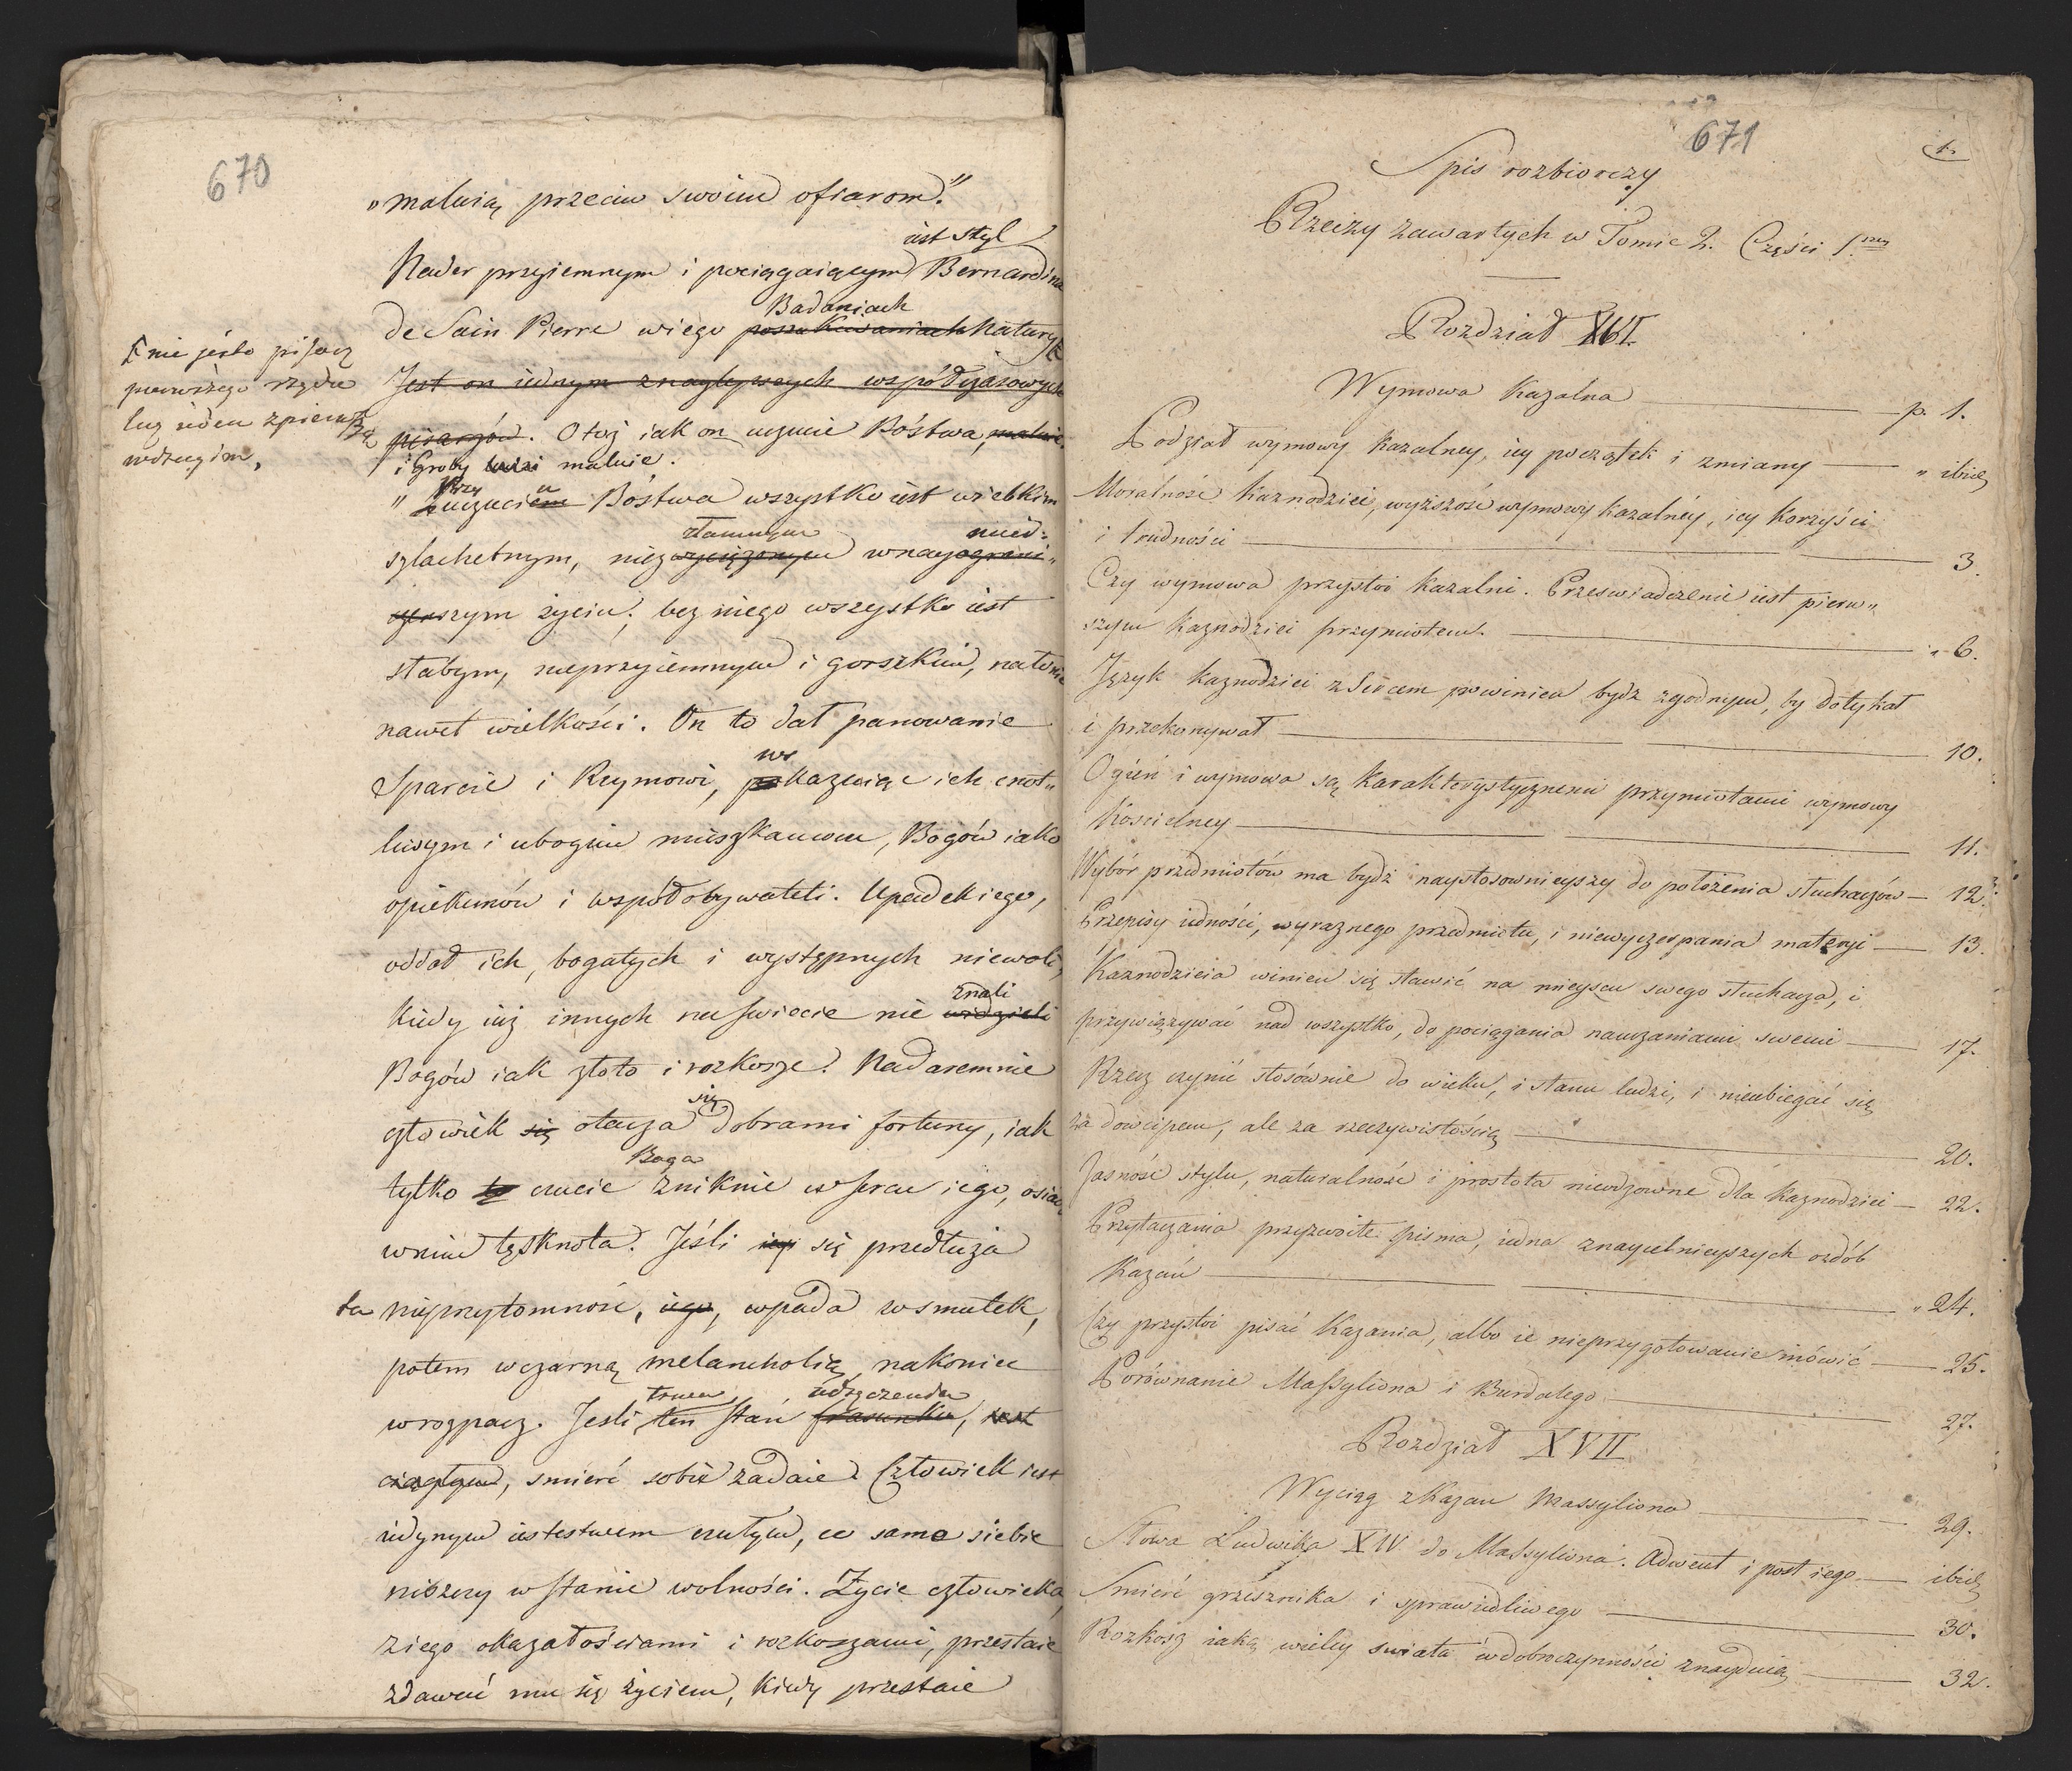 670
„maluią przeciw swoim ofiarom."
iest styl
Nader przyiemnym i pociągaiącym Bernardina
Badaniach
de Sain Pierre wiego poszukiwaniach Natury
nie jesto pisarz
pierwszego rzędu
lecz ieden z pierw
wdrugim,
Jest on iednym znaylepszych współczasowych
pisarzów. Otóż iak on uczucie Bóstwa, maluie
i Groby ludzi maluie.
Przy
„ Zuczuciem Bóstwa wszystko iest wielkim
nied:
szlachetnym, niezwyciężonym wnayograni„
czenszym życiu; bez niego wszystko iest
słabym, nieprzyiemnym i gorszkim, na łonie
nawet wielkości. On to dał panowanie
Sparcie i Rzymowi, pokazuiąc ich cnot„
liwym i ubogim mieszkancom, Bogów iako
opiekunów i współobywateli. Upadek iego,
oddał ich, bogatych i występnych niewoli,
znali
Kiedy iuż innych na swiecie nie widzieli
Bogów iak złoto i rozkosze. Nadaremnie
się
człowiek się otacza dobrami fortuny, iak
Boga
tylko to czucie zniknie w sercu iego, osiada
wnim tęsknota. Jeśli się przedłuża
ta nieprzytomność, iego, wpada w smutek,
potem wczarną melancholią, nakoniec
udręczenia
wrozpacz. Jesli ten stan frasunku, iest
ciągłym, smierć sobie zadaie. Człowiek iest
iedynym iestestwem czułym, co samo siebie
niszczy w stanie wolności. Życie człowieka,
ziego okazałościami i rozkoszami, przestaie
zdawać mu się życiem, kiedy przestaie
671
1.
Spis rozbiorczy
Rzeczy zawartych w Tomie 2. Części 1szey
Rozdział XVI.
Wymowa Kazalna — p. 1.
Podział wymowy kazalney, iey początek i zmiany — „ ibid
Moralność kaznodziei, wyższość wymowy kazalnéy, icy korzyści
i trudności — 3.
Czy wymowa przystoi kazalni. Przeswiadczenie iest pierw„
szym kaznodziei przymiotem. — „ 6.
Język kaznodziei z sercem powinien bydz zgodnym, by dotykał
i przekonywał — 10.
Ogień i wymowa są karakterystycznemi przymiotami wymowy
kościelney — 11.
Wybór przedmiotów ma bydź naystosownieyszy do położenia słuchaczów — 12.
Przepisy iedności, wyraznego przedmiotu, i niewyczerpania materyi — 13.
Kaznodzieia winien się stawić na mieyscu swego słuchacza, i
przywiązywać nad wszystko, do pociągania nauczaniami swemi — 17.
Rzecz czynić stosównie do wieku, i stanu ludzi, i nieubiegać się
za dowcipem, ale za rzeczywistością — 20.
Jasność stylu, naturalność i prostota nieodzowne dla kaznodziei — 22.
Przytaczania przyzwoite pisma, iedna znaycelnieyszych ozdób
Kazań — „ 24.
Czy przystoi pisać Kazania, albo ie nieprzygotowanie mówić — 25.
Porównanie Massyliona i Burdalego — 27.
Rozdział XVII
Wyciąg z Kazan Massyliona — 29.
Słowa Ludwika XIV do Massyliona. Adwent i post iego — ibid
Smierć grzesznika i sprawiedliwego — 30.
Rozkosz iaką wielcy swiata w dobroczynności znayduią — 32.